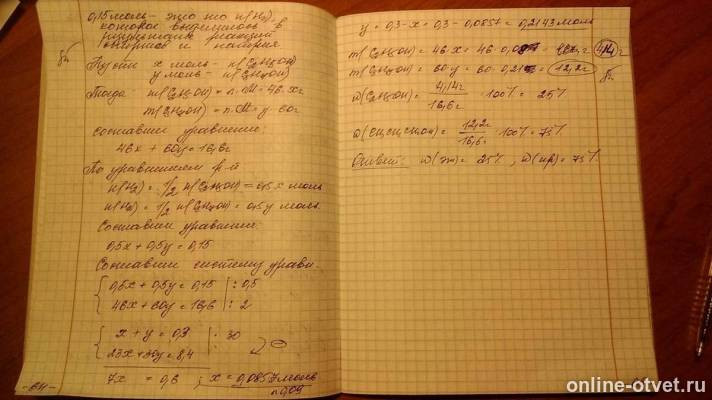 0,15 моль - это то n(H₂),
которое выделилось в
результате реакций
спиртов и натрия
Пусть x моль - n(C₂H₅OH)
y моль - n(C₃H₇OH)
Тогда: m(C₂H₅OH) = n·M = 46·x г
m(C₃H₇OH) = n·M = y 60г
Составим уравнение:
46x + 60y = 16,6г
По уравнениям р-й
n(H₂) = 1/2 n(C₂H₅OH) = 0,5x моль
n(H₂) = 1/2 n(C₃H₇OH) = 0,5y моль.
Составим уравнение:
0,5x + 0,5y = 0,15
Составим систему уравн.
0,5x + 0,5y = 0,15 | : 0,5
46x + 60y = 16,6 | : 2
x + y = 0,3 | · 30
23x + 30y = 8,4
7x = 0,6 ; x = 0,0857 моль
≈ 0,09
y = 0,3 - x = 0,3 - 0,0857 = 0,2143 моль
m(C₂H₅OH) = 46x = 46·0,09 = 4,14г
m(C₃H₇OH) = 60·y = 60·0,21 = 12,2г
ω(C₂H₅OH) = 4,14г / 16,6г · 100% = 25%
= 12,2г / 16,6г · 100% = 75%
Ответ: ω(эт) = 25%, ω(пр) = 75%.
online-otvet.ru